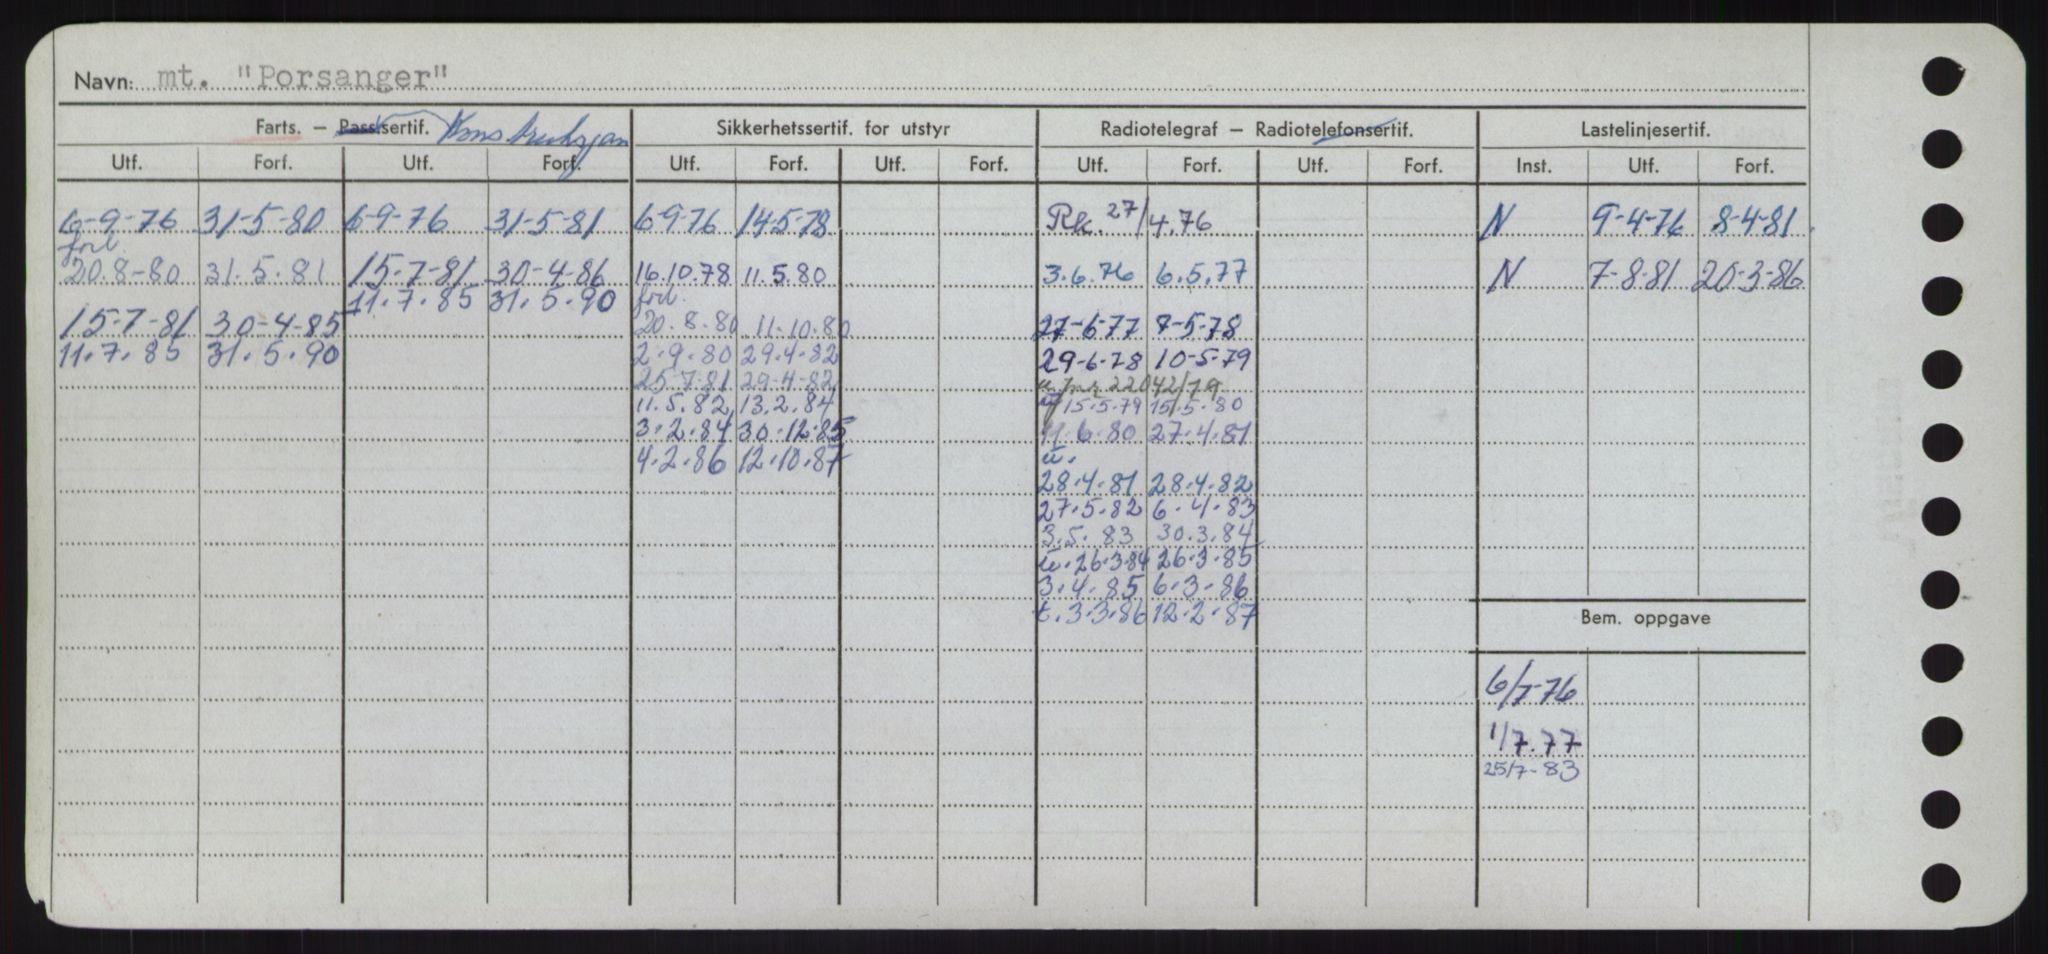 Navn: mt. "Porsanger"
Farts. – Passsertif. Sikkerhetssertif. for utstyr Radiotelegraf – Radiotelefonsertif. Lastelinjesertif.
Utf. Forf. Utf. Forf. Utf. Forf. Utf. Forf. Utf. Forf. Utf. Forf. Inst. Utf. Forf.
6-9-76 31-5-80 6-9-76 31-5-81 6-9-76 14-5-78 Rk. 27/4.76 N 9-4-76 8-4-81
forl.
20.8-80 31.5.81 15-7-81 30-4-86 16.10.78 11.5.80 3.6.76 6.5.77 N 7-8-81 20-3-86
11.7.85 31.5.90 forl.
15-7-81 30-4-85 20.8.80 11.10.80 27-6-77 7-5-78
11.7.85 31.5.90 2.9.80 29.4.82 29-6-78 10-5-79
25-7-81 29-4-82 22042/79
11.5.82 13.2.84 15.5.79 15.5.80
3.2.84 30.12.85 11.6.80 27.4.81
4.2.86 12.10.87 u.
28.4.81 28.4.82
27.5.82 6.4.83
3.5.83 30.3.84
u.26.3.84 26.3.85
3.4.85 6.3.86
t.3.3.86 12.2.87
Bem. oppgave
6/7-76
1/7.77
25/7-83